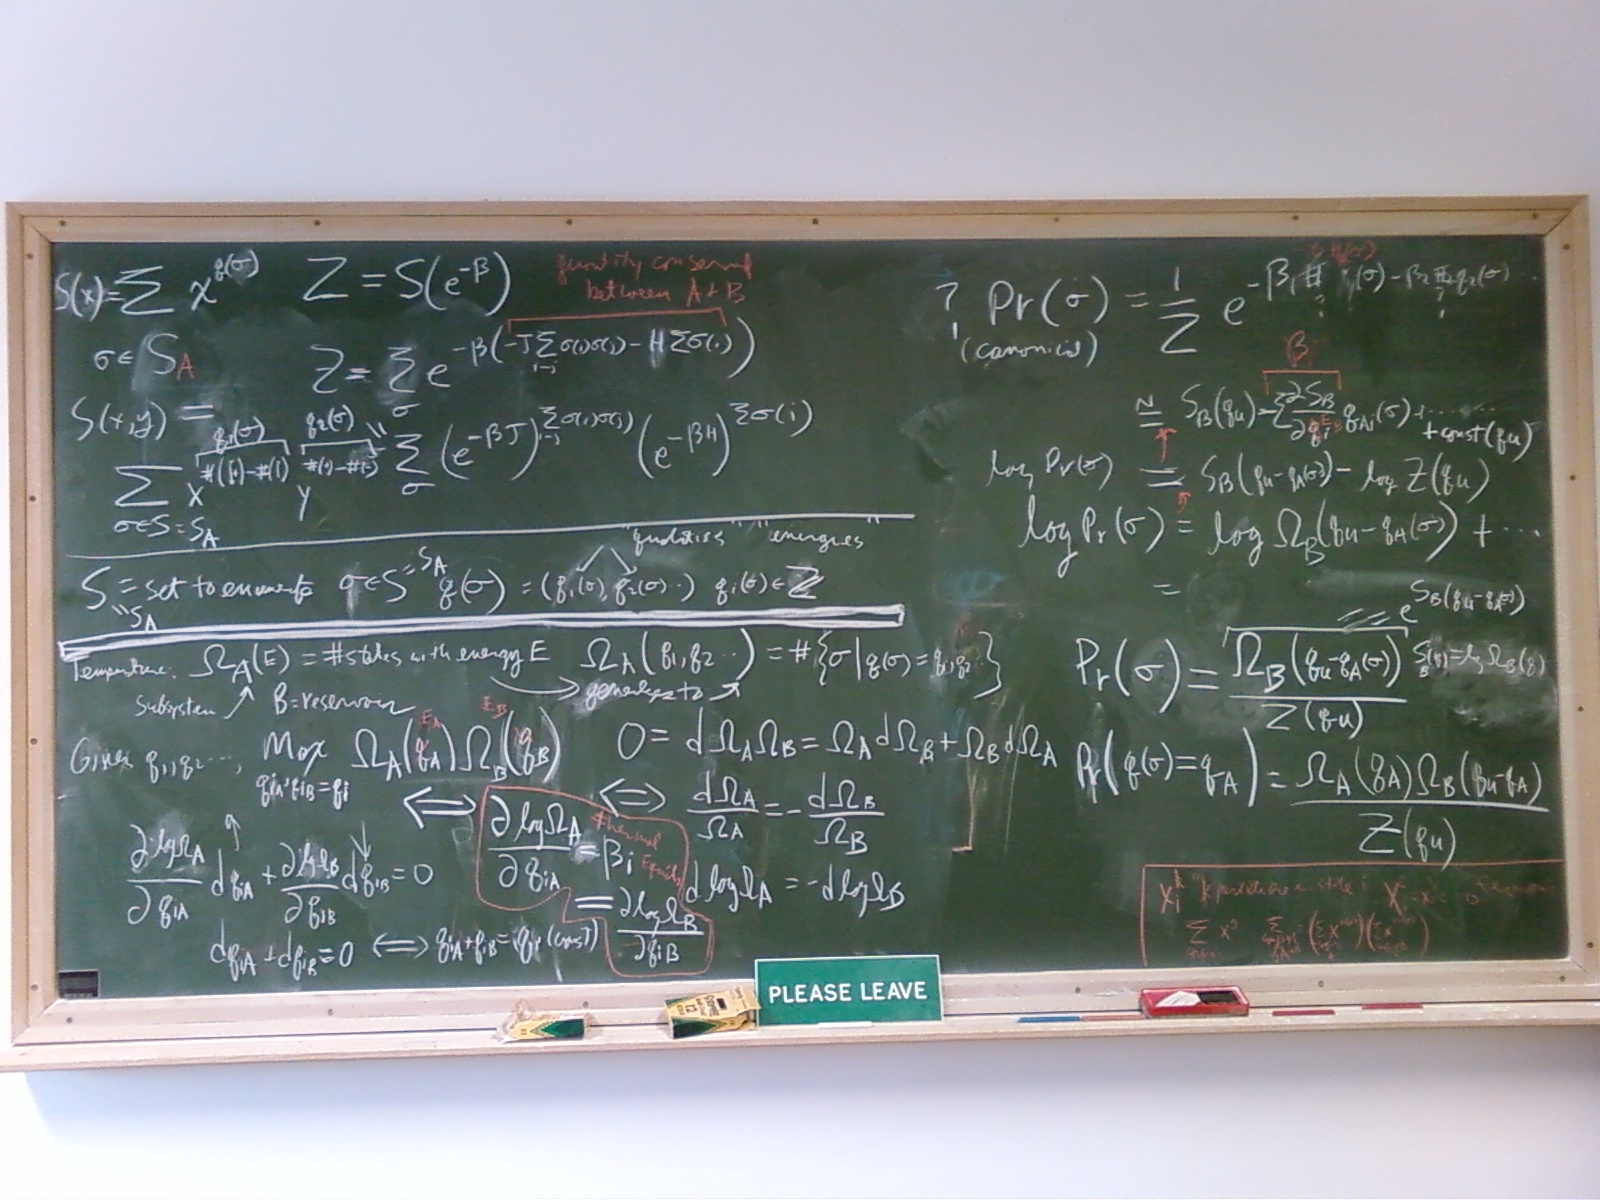 S(x)=Σ x^{q(σ)}   Z = S(e^{-β})
σ∈S_A
quantity conserved
between A+B
Z = Σ_σ e^{-β(-J Σ_{i-j} σ(i)σ(j) - H Σσ(i))}
S(x,y) =
q₁(σ)   q₂(σ)
Σ_{σ∈S=S_A} x y
" Σ_σ (e^{-βJ})^{Σ_{i-j} σ(i)σ(j)} (e^{-βH})^{Σσ(i)}
"quantities" "energies"
S = set to enumerate σ∈S=S_A   q(σ) = (q₁(σ), q₂(σ)..)   q_i(σ)∈ℤ
"S_A
Temperature: Ω_A(E) = # states with energy E   Ω_A(q₁,q₂...) = #{σ|q(σ)=q₁,q₂..}
Subsystem   B=reservoir   generalizes to
E_A   E_B
Given q₁,q₂..., Max Ω_A(q_A)Ω_B(q_B)   0 = dΩ_AΩ_B = Ω_A dΩ_B + Ω_B dΩ_A
q_{iA}+q_{iB}=q_i
⟺ ∂logΩ_A/∂q_{iA} = β_i   ⟺   dΩ_A/Ω_A = - dΩ_B/Ω_B
thermal
Equilib
∂logΩ_A/∂q_{iA} dq_{iA} + ∂logΩ_B/∂q_{iB} dq_{iB} = 0   = ∂logΩ_B/∂q_{iB}   dlogΩ_A = -dlogΩ_B
dq_{iA} + dq_{iB} = 0 ⟺ q_{iA}+q_{iB} = q_i (const)
? Pr(σ) = 1/Z e^{-β₁ q₁(σ) - β₂ q₂(σ) ...}
(canonical)
β_i
≅ S_B(q_u) - Σ ∂S_B/∂q_i q_{Ai}(σ) + ......
+const(q_u)
log Pr(σ) = S_B(q_u-q_A(σ)) - log Z(q_u)
log Pr(σ) = log Ω_B(q_u-q_A(σ)) + ...
=
= e^{S_B(q_u-q_A(σ))}
Pr(σ) = Ω_B(q_u-q_A(σ)) / Z(q_u)   S_B(q)=log Ω_B(q)
Pr(q(σ)=q_A) = Ω_A(q_A)Ω_B(q_u-q_A) / Z(q_u)
x_i^k "k particles are in state i
PLEASE LEAVE